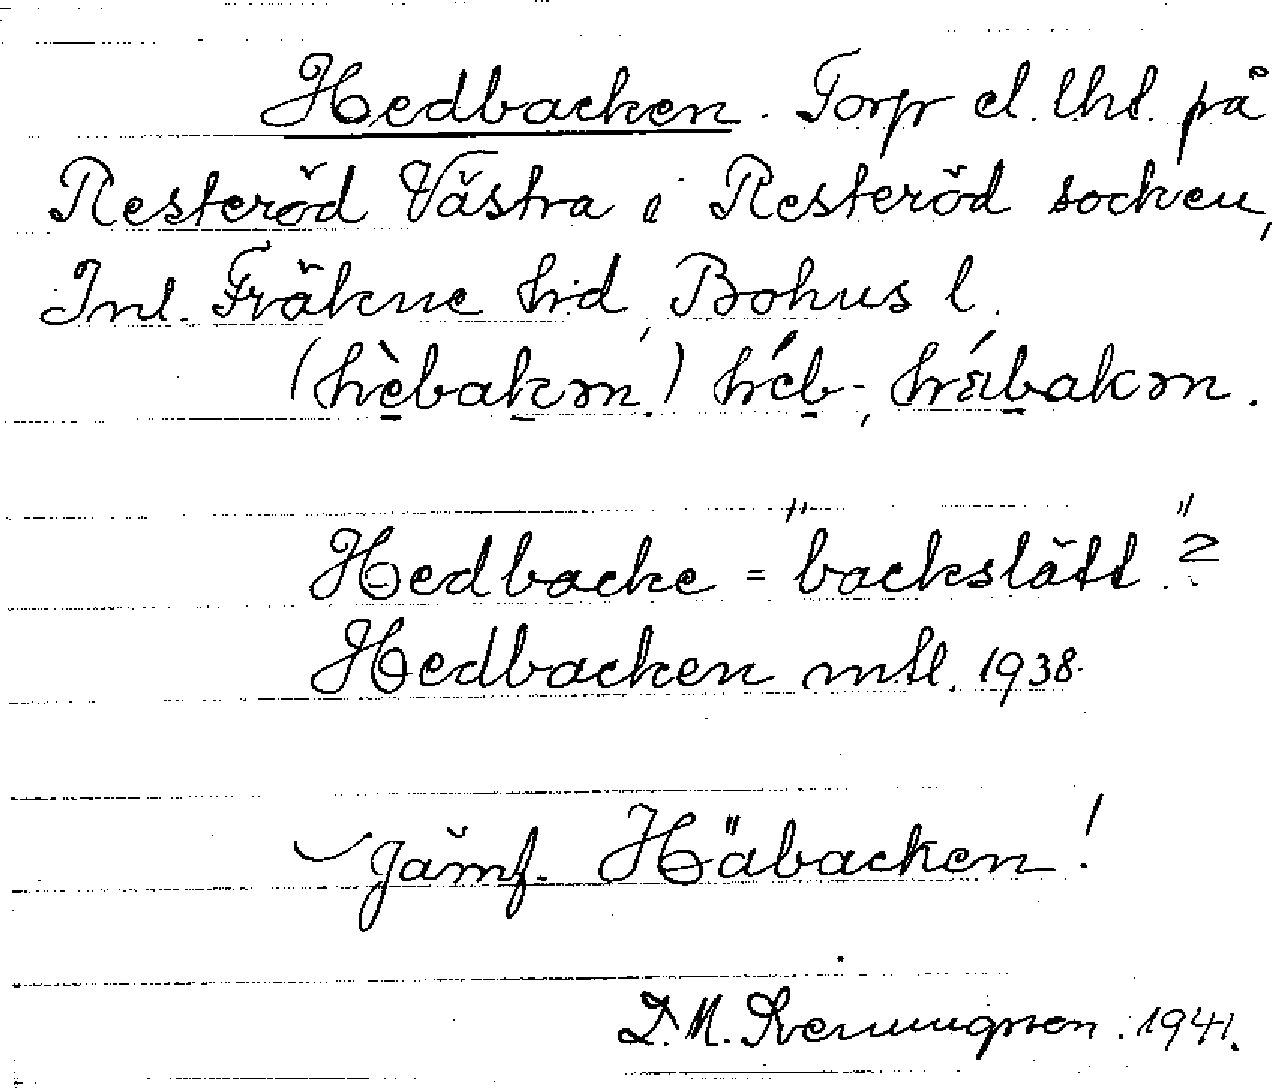 Hedbacken. Torp el. lht. på
Resteröd Västra i Resteröd socken,
Inl. Fräkne hrd, Bohus l.
(hèbakɔn.) héb-, hábakɔn.
Hedbacke = "backslätt"?
Hedbacken mtl. 1938.
Jämf. Häbacken!
D. M. 1941.